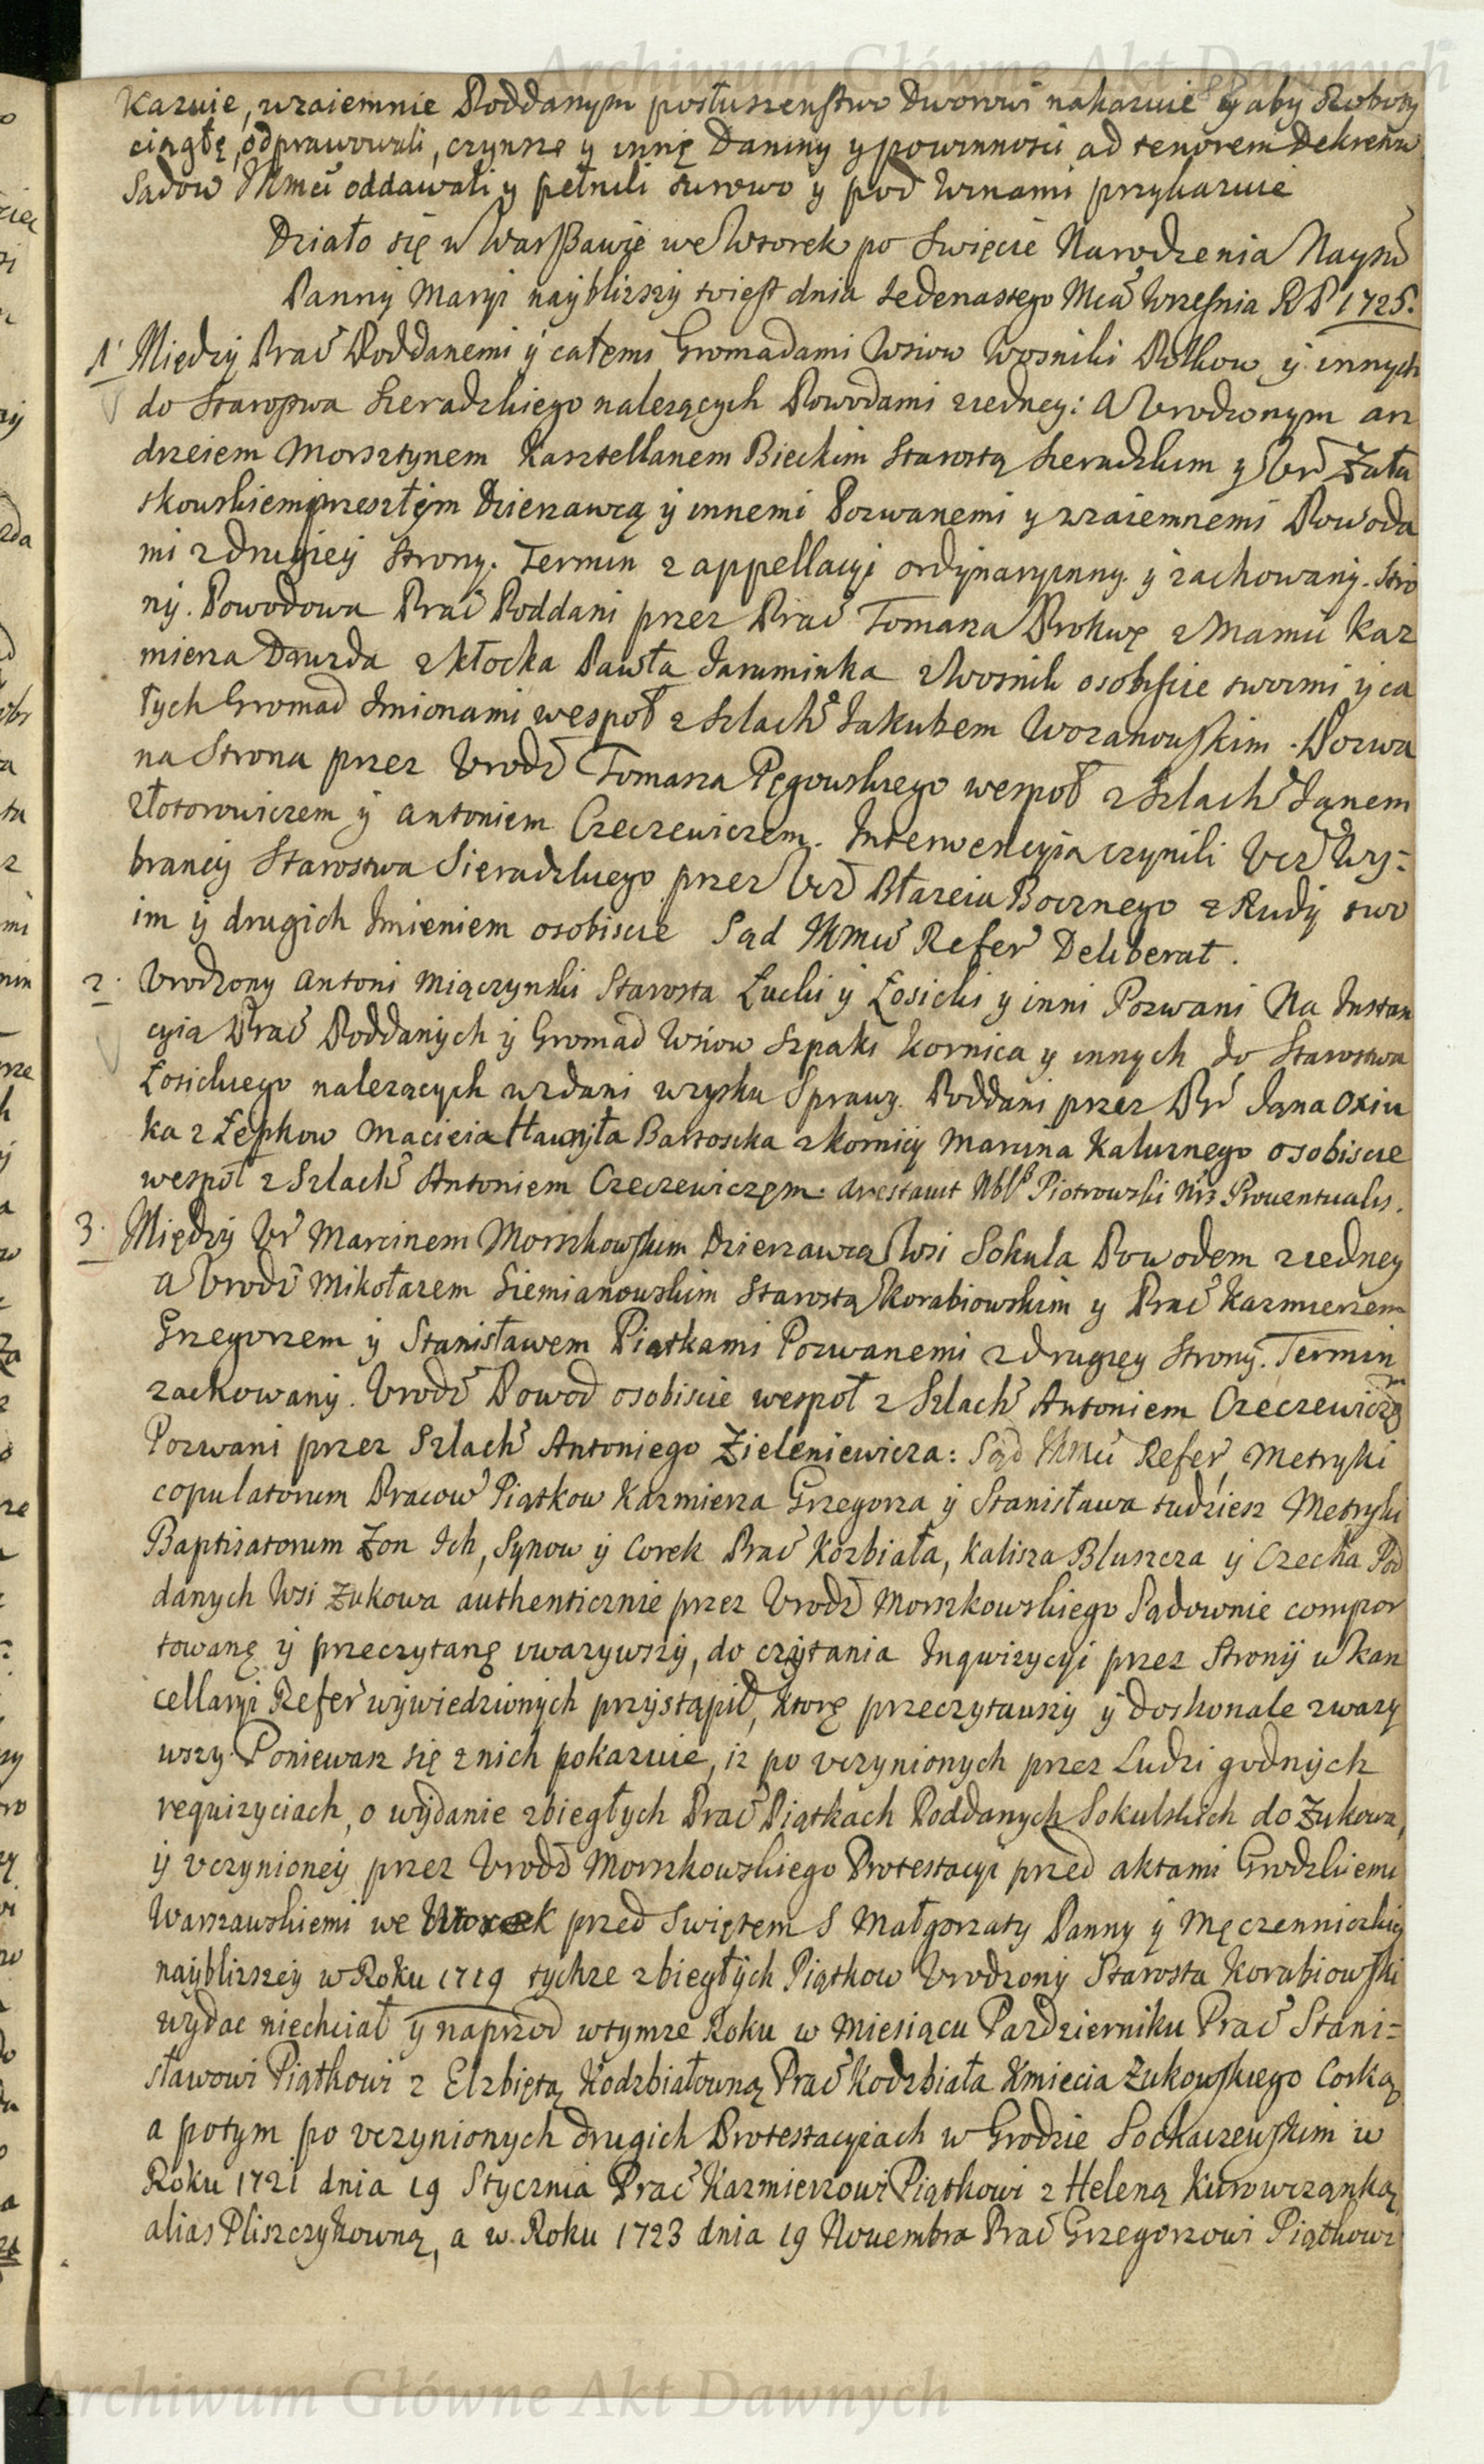 Archiwum Główne Akt Dawnych
kazuie, wzaiemnie Poddanym posłuszenstwo Dworowi nakazuie y aby Roboty
ciągłę, odprawowali, czynsze y innę Daniny y powinnosci ad tenorem Dekretu
Sadow JKmci oddawali y pełnili surowo y pod winami przykazuie
Działo się w Warszawie we Wtorek po Swięcie Narodzenia Nayśw
Panny Maryi nayblizszy to iest dnia Iedenastego Mcá Wrzesnia RP 1725.
1 Między Prać Poddanemi y całemi Gromadami Wsiow Wosniki Polkow y innych
do Starostwa Sieradzkiego nalezących Powodami z iedney: A Vrodzonym An
drzeiem Morsztynem Kasztellanem Bieckim Starostą Sieradzkim y Vr Zału
skowskiem przeszłym Dzierzawcą y innemi Pozwanemi y wzaiemnemi Powoda
mi z drugiey Strony. Termin z appellacyi ordynaryinny y zachowany. Stro
ny. Powodowa Prać Poddani przez Prać Tomasza Prokwę z Mamić Kaz
mierza Druzda z Kłocka Pawła Jaruminka z Wosnik osobiscie swoimi y ca
łych Gromad Imionami wespoł z Szlach Jakubem Wozanowskim. Pozwa
na Strona przez Vrodź Tomasza Pęgowskiego wespoł z Szlach Janem
Złotorowiczem y Antoniem Czeczewiczem. Interwencyią czynili Vcz Wy=
brancy Starostwa Sieradzkiego przez Vcz Błazeia Bocznego z Rudy swo
im y drugich Imieniem osobiscie Sąd JKmci Refer Deliberat.
2. Vrodzony Antoni Miączynski Starosta Łucki y Łosicki y inni Pozwani Na Instan
cyią Prać Poddanych y Gromad Wsiow Szpaki Kornica y innych do Starostwa
Łosickiego nalezących wzdani wzysku Sprawy. Poddani przez Pr Jana Oxiu
ka z Łepkow Macieia Hawryła Bartoszka z Kornicy Marcina Kaluznego osobiscie
wespoł z Szlach Antoniem Czeczewiczem. Arestavit Nbl Piotrowski Nrs Prouentualis.
3. Między Vr Marcinem Morszkowskim Dzierzawcą Wsi Sokula Powodem z iedney
A Vrodź Mikołaiem Siemianowskim Starostą Korabiowskim y Prać Kazmierzem
Grzegorzem y Stanisławem Piątkami Pozwanemi z drugiey Strony. Termin
zachowany. Vrodź Powod osobiscie wespoł z Szlach Antoniem Czeczewiczem
Pozwani przez Szlach Antoniego Zieleniewicza: Sąd JKmci Refer Metryki
copulatorum Pracow Piątkow Kazmierza Grzegorza y Stanisława tudziesz Metryki
Baptisatorum Zon Ich, Synow y Corek Prać Kozbiała, Kalisza Bluszcza y Czecha Pod
danych Wsi Zukowa authenticznie przez Vrodź Morszkowskiego Sądownie compor
towanę y przeczytanę uwazywszy, do czytania Inqwizycyi przez Strony w Kan
cellaryi Refer wywiedzionych przystąpił, ktorę przeczytawszy y doskonale zwazy
wszy. Poniewasz się z nich pokazuie, iz po vczynionych przez Ludzi godnych
requizyciach, o wydanie zbiegłych Prać Piątkach Poddanych Sokulskich do Zukowa,
y vczynioney przez Vrodź Morszkowskiego Protestacyi przed aktami Grodzkiemi
Warszawskiemi we Wtorek przed Swiętem S Małgorzaty Panny y Męczenniczki
nayblizszey w Roku 1719 tychze zbiegłych Piątkow Vrodzony Starosta Korabiowski
wydac niechciał y naprzod w tymze Roku w Miesiącu Pazdzierniku Prać Stani=
sławowi Piątkowi z Elzbietą Kodzbiałowną Prać Kodzbiała Kmiecia Zukowskiego Corką
a potym po vczynionych drugich Protestacyiach w Grodzie Sochaczewskim w
Roku 1721 dnia 19 Stycznia Prać Kazmierzowi Piątkowi z Heleną Kurowczanką
alias Pliszczykowną, a w Roku 1723 dnia 19 Nouembra Prać Grzegorzowi Piątkowi
Archiwum Główne Akt Dawnych